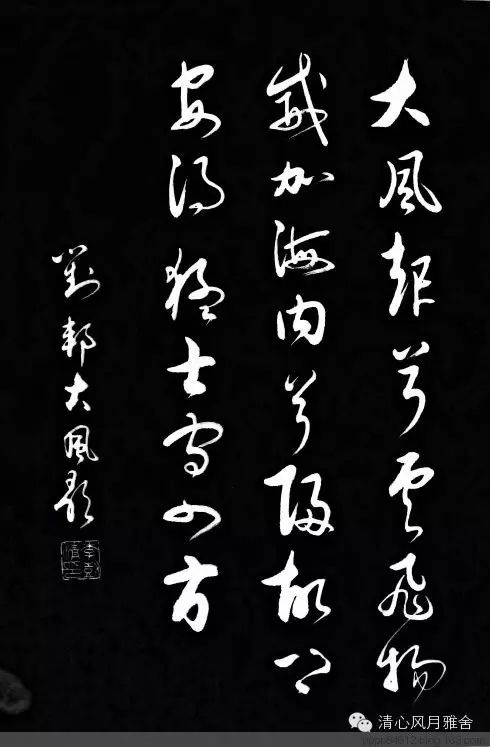 大風起兮雲飛揚
威加海内兮歸故鄉
安得猛士守四方
劉邦大風歌
清心风月雅舍